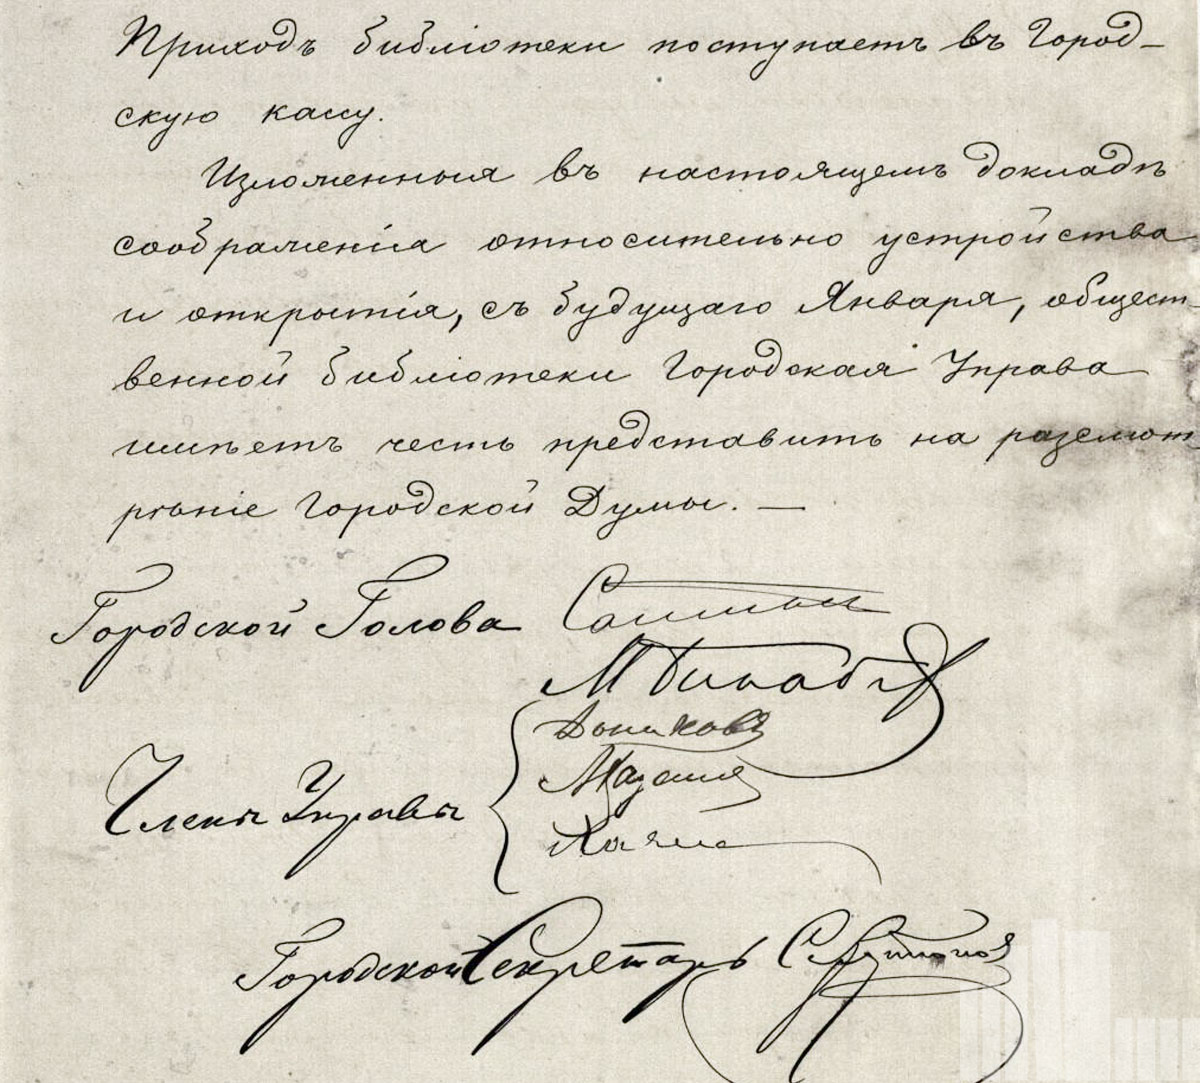 Приходъ библіотеки поступаетъ въ Город-
скую кассу.
Изложенныя въ настоящемъ докладѣ
соображенія относительно устройства
и открытія, съ будущаго Января, общест-
венной библіотеки Городская Управа
имѣетъ честь представить на разсмот-
рѣніе Городской Думы. —
Городской Голова
Члены Управы
Городской Секретарь